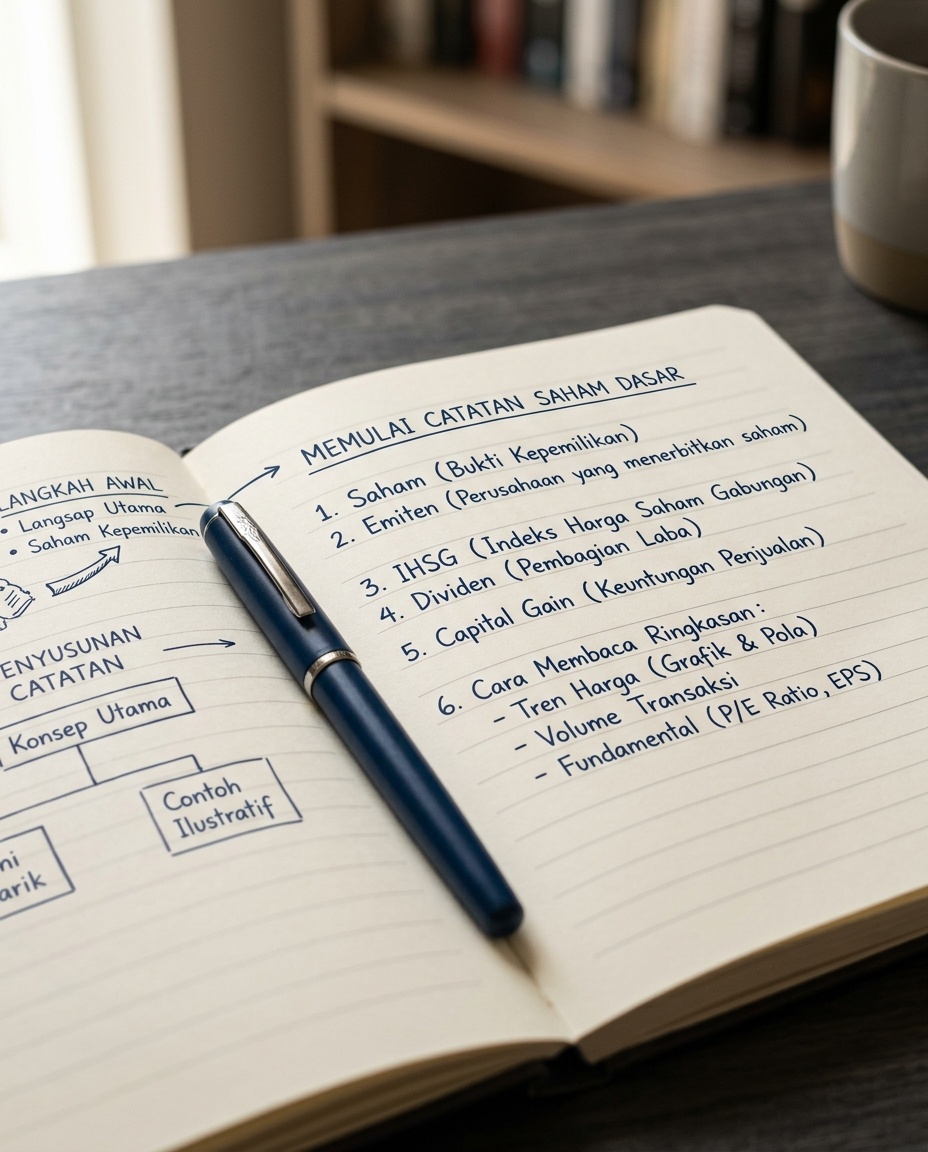 LANGKAH AWAL
• Langsap Utama
• Saham Kepemilikan
PENYUSUNAN
CATATAN
Konsep Utama
Contoh
Ilustratif
MEMULAI CATATAN SAHAM DASAR
1. Saham (Bukti Kepemilikan)
2. Emiten (Perusahaan yang menerbitkan saham)
3. IHSG (Indeks Harga Saham Gabungan)
4. Dividen (Pembagian Laba)
5. Capital Gain (Keuntungan Penjualan)
6. Cara Membaca Ringkasan:
- Tren Harga (Grafik & Pola)
- Volume Transaksi
- Fundamental (P/E Ratio, EPS)